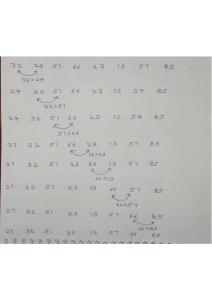 32 27 51 66 23 13 57 85
32>27
27 32 51 66 23 13 57 85
32>51
27 32 51 66 23 13 57 85
51>66
27 32 51 66 23 13 57 85
66>23
27 32 51 23 66 13 57 85
66>13
27 32 51 23 13 66 57 85
66>57
27 32 51 23 13 57 66 85
66>85
27 32 51 23 13 57 66 85